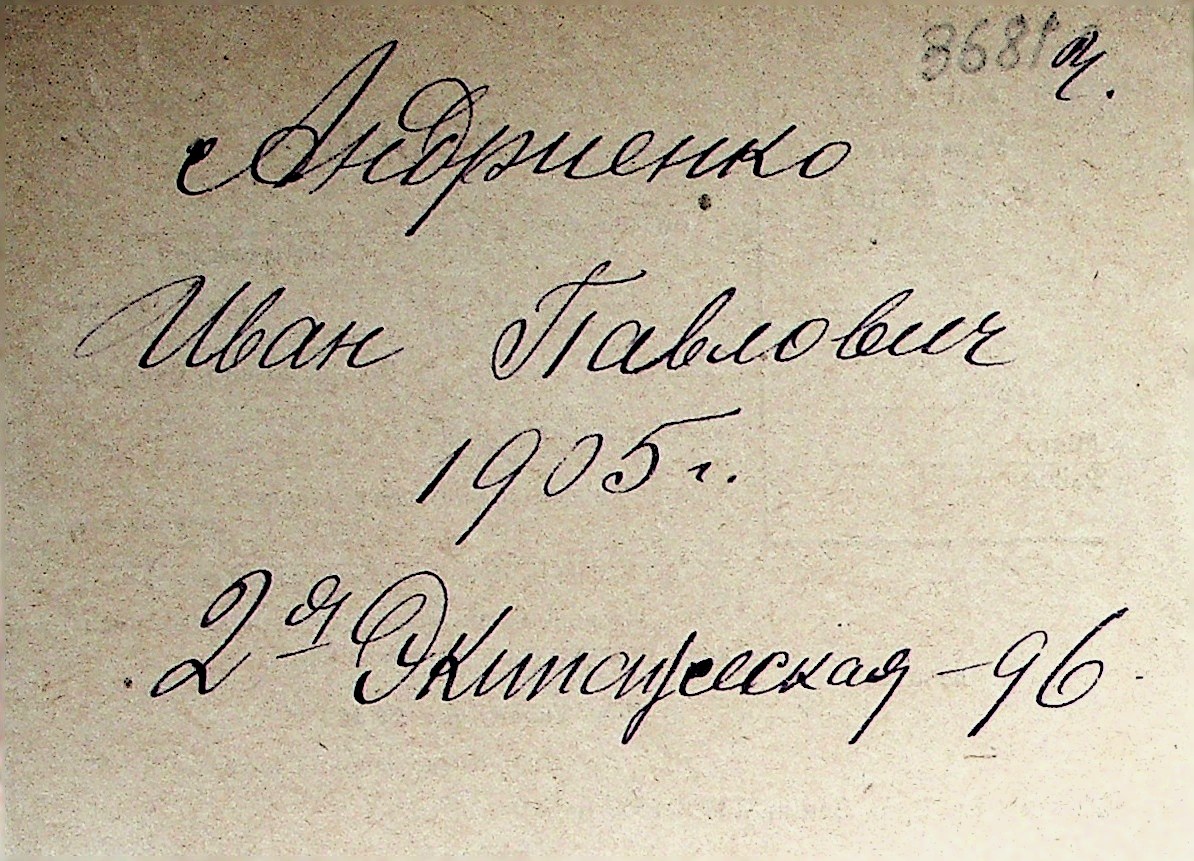 3681 ч.
Андриенко
Иван Павлович
1905 г.
2я Экипажеская – 96